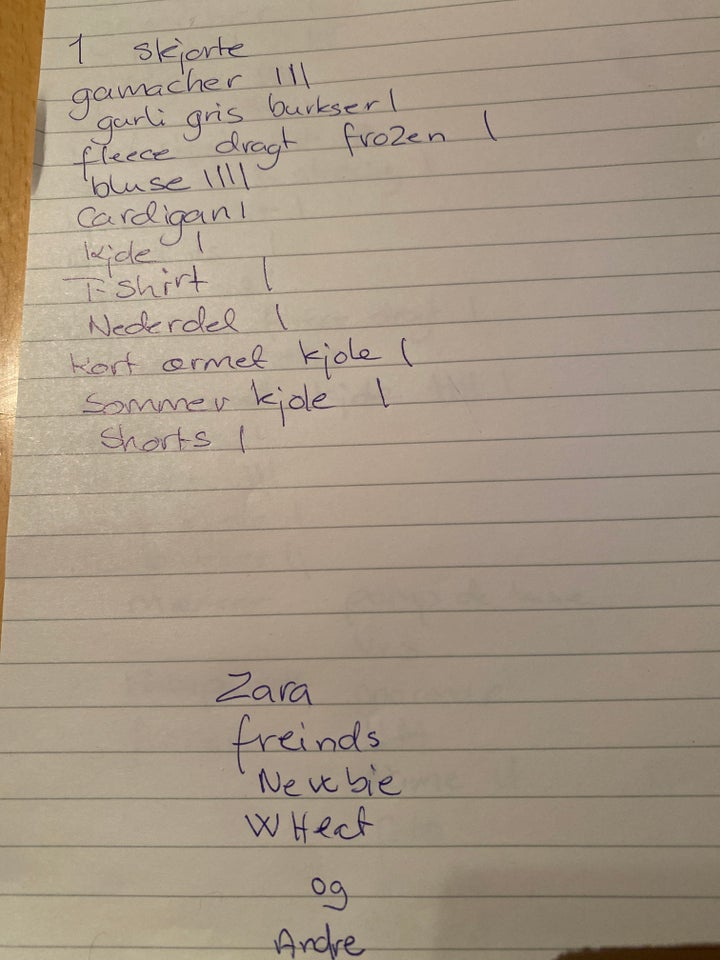 1 skjorte
gamacher | | |
gurli gris burkser |
fleece dragt frozen |
bluse | | | |
Cardigan |
kjole |
T-Shirt |
Nederdel |
Kort ærmet kjole |
Sommer kjole |
Shorts |
Zara
freinds
Newbie
WHeat
og
Andre